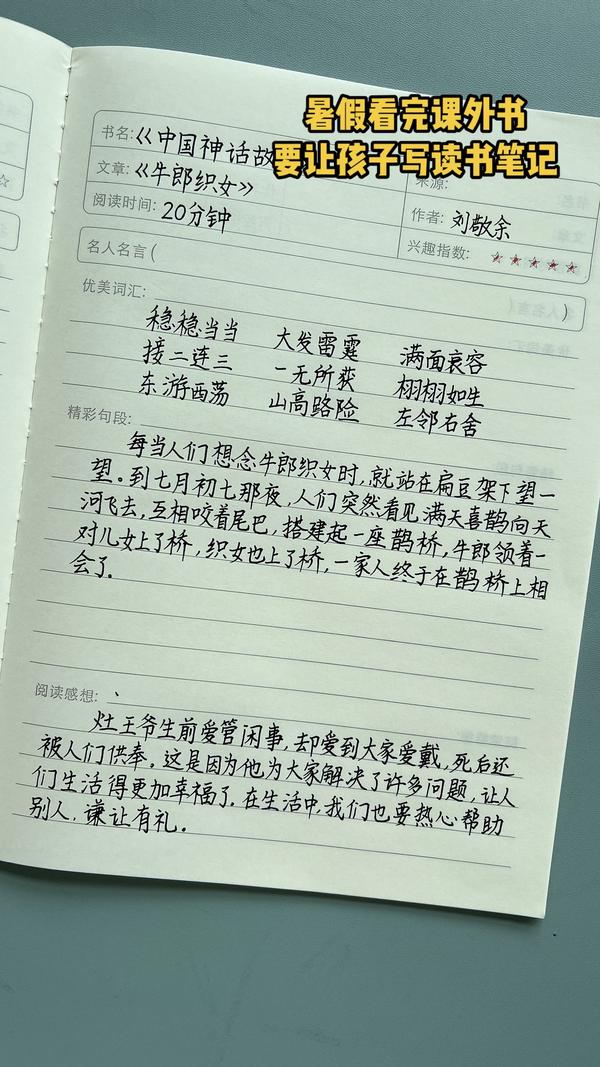 暑假看完课外书
要让孩子写读书笔记
书名:《中国神话故
文章:《牛郎织女》
来源:
阅读时间: 20分钟
作者: 刘敬余
兴趣指数: ★★★★★
名人名言( )
优美词汇:
稳稳当当 大发雷霆 满面哀容
接二连三 一无所获 栩栩如生
东游西荡 山高路险 左邻右舍
精彩句段:
每当人们想念牛郎织女时,就站在扁豆架下望一
望。到七月初七那夜,人们突然看见满天喜鹊向天
河飞去,互相咬着尾巴,搭建起一座鹊桥,牛郎领着一
对儿女上了桥,织女也上了桥,一家人终于在鹊桥上相
会了.
阅读感想: 、
灶王爷生前爱管闲事,却爱到大家爱戴,死后还
被人们供奉。这是因为他为大家解决了许多问题,让人
们生活得更加幸福了.在生活中,我们也要热心帮助
别人,谦让有礼。